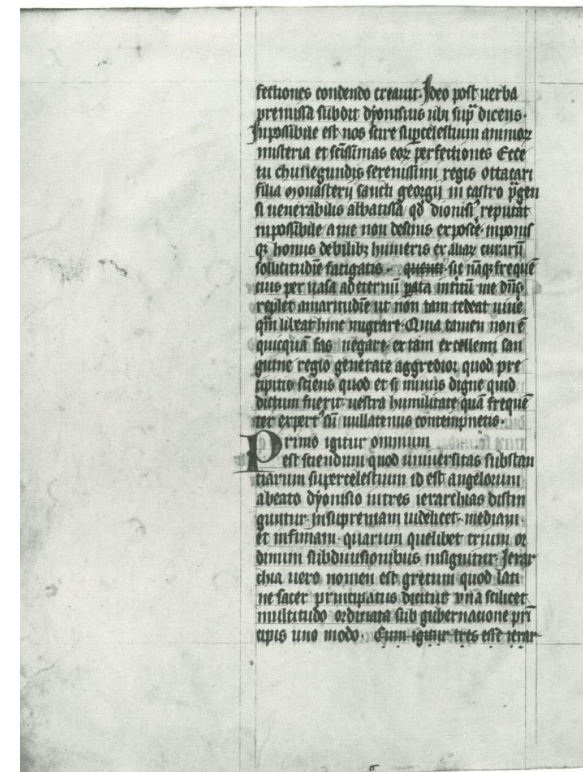 fectiones condendo creauit. Ideo post uerba
premissa subdit dyonisius ubi sup dicens.
Inpossibile est nos scire supcelestium animoꝝ
misteria et scissimas eoꝝ perfectiones Ecce
tu chunegundis serenissimi regis ottacari
filia monasterii sancti georgii in castro pragen
si uenerabilis abbatissa qd dionisi reputat
inpossibile a me non desinis exposcere inponis
qꝫ honus debilibꝫ humeris ex aliaꝝ curarū
sollicitudīe fatigatis. sic nāqꝫ frequē
cius per uasa ad eternū pata intitū me dn̄s
replet amaritudīe ut non tam tedeat uiuē
qm libeat hinc migrare. Quia tamen non ē
quicquā fas negare. ex tam excellenti san
guine regio generate aggredior quod pre
cipitis sciens quod et si minus digne quid
dictum fuerit. uestra humilitate quā frequē
ter expert sū nullatenus contempnetis.
Primo igitur omnium
est sciendum quod uniuersitas substan
tiarum supercelestium id est angelorum
a beato dyonisio in tres ierarchias distin
guntur. in supremam uidelicet. mediam.
et infimam. quarum quelibet trium or
dinum subdiuisionibus insignitur. Ierar
chia uero nomen est grecum quod lati
ne sacer principatus dicitur una scilicet
multitudo ordinata sub gubernacione prī
cipis uno modo. Cum igitur tres esse ierar